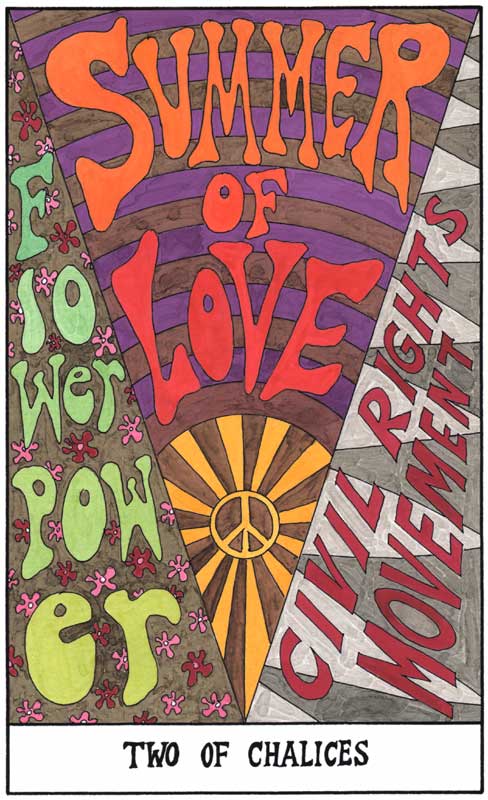 SUMMER
OF
LOVE
Flo
wer
POW
er
CIVIL RIGHTS
MOVEMENT
TWO OF CHALICES